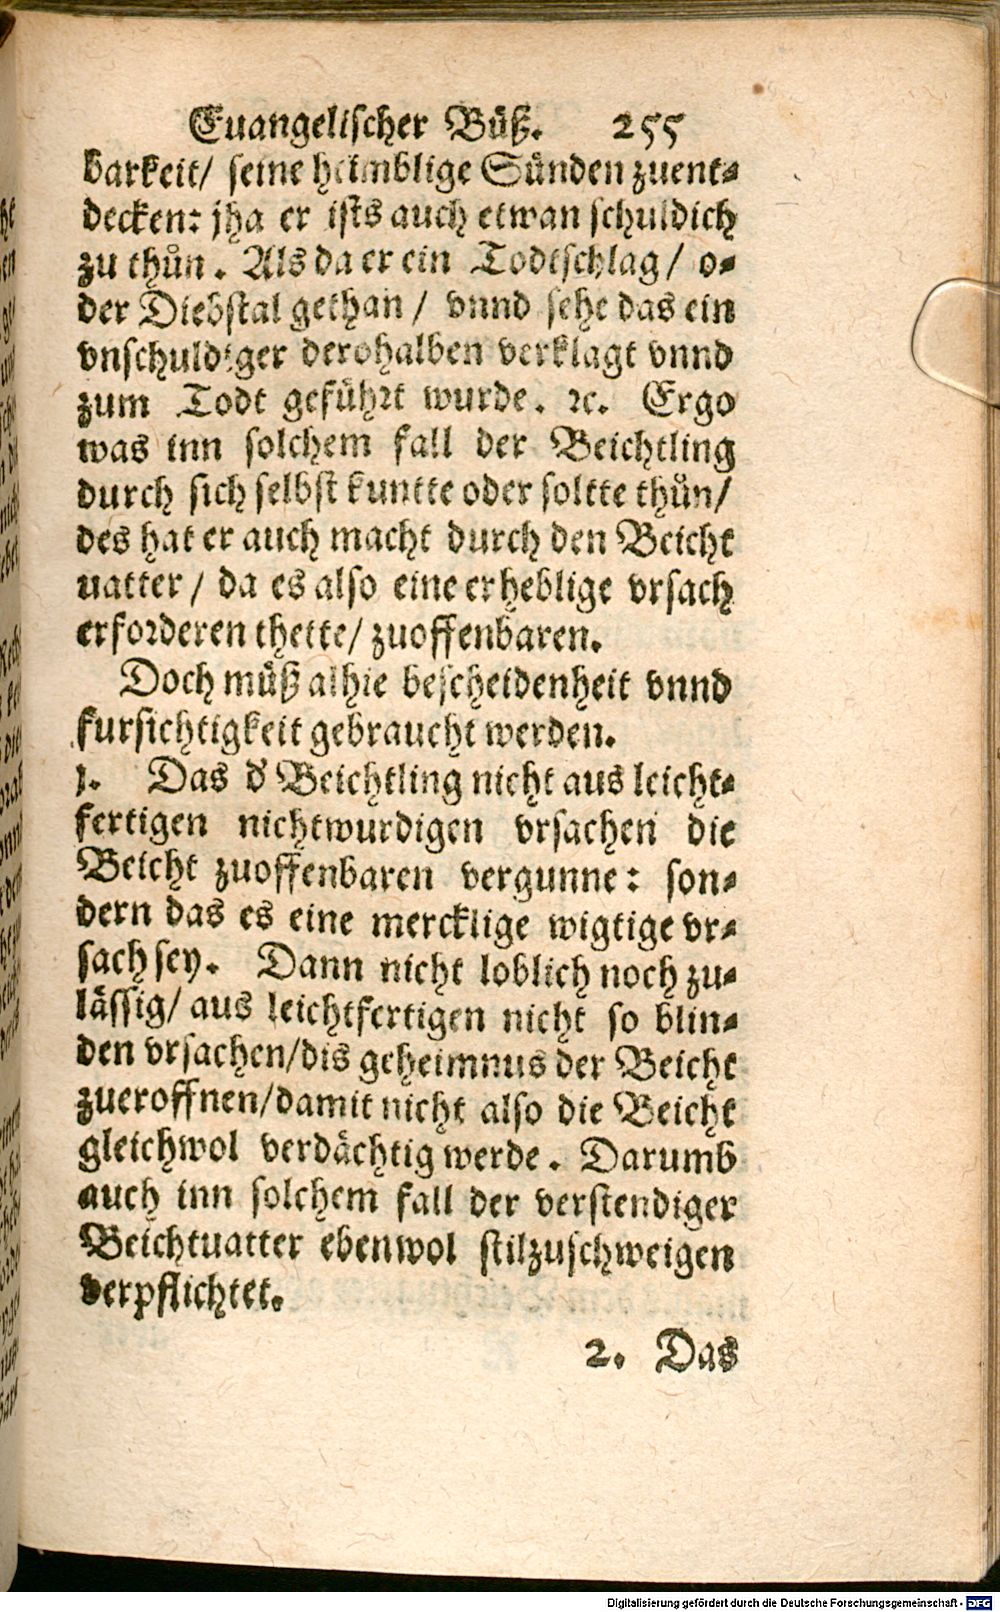 Euangelischer Büß. 255
barkeit/ seine heimblige Sünden zuent⸗
decken: jha er ists auch etwan schuldich
zu thůn. Als da er ein Todtschlag/ o⸗
der Diebstal gethan/ vnnd sehe das ein
vnschuldiger derohalben verklagt vnnd
zum Todt geführt wurde. ꝛc. Ergo
was inn solchem fall der Beichtling
durch sich selbst kuntte oder soltte thůn/
des hat er auch macht durch den Beicht
uatter/ da es also eine erheblige vrsach
erforderen thette/ zuoffenbaren.
Doch müß alhie bescheidenheit vnnd
fursichtigkeit gebraucht werden.
1. Das d' Beichtling nicht aus leicht⸗
fertigen nichtwurdigen vrsachen die
Beicht zuoffenbaren vergunne: son⸗
dern das es eine mercklige wigtige vr⸗
sach sey. Dann nicht loblich noch zu⸗
lässig/ aus leichtfertigen nicht so blin⸗
den vrsachen/dis geheimnus der Beicht
zueroffnen/damit nicht also die Beicht
gleichwol verdächtig werde. Darumb
auch inn solchem fall der verstendiger
Beichtuatter ebenwol stilzuschweigen
verpflichtet.
2. Das
Digitalisierung gefördert durch die Deutsche Forschungsgemeinschaft - DFG